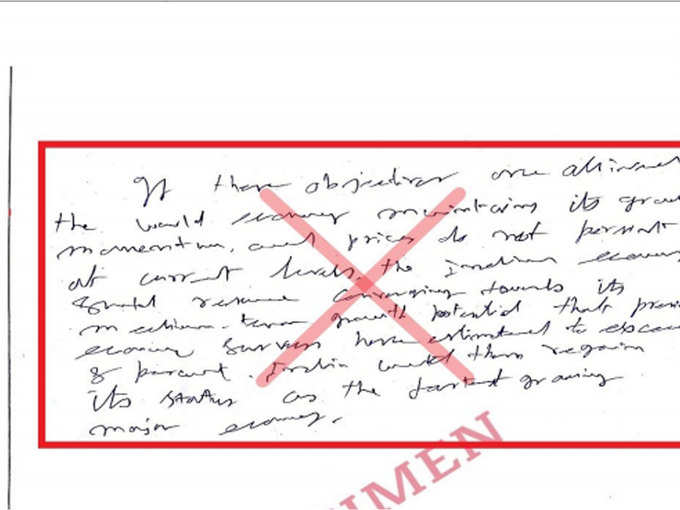 If these objectives are achieved
the world economy maintaining its grow
momentum, and prices do not persist
at current levels, the Indian economy
should resume converging towards its
medium-term growth potential that previ
economic surveys have estimated to exceed
8 percent. India would then regain
its status as the fastest growing
major economy.
IMEN